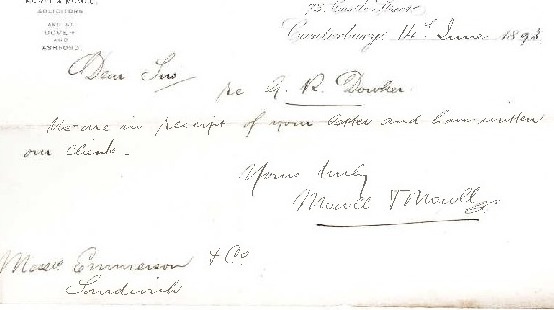 SOLICITORS
AND AT
DOVER
AND
ASHFORD.
Castle Street
Canterbury 14th June 1898
Dear Sirs
re G. R. Dowker
We are in receipt of your letter and have written
our Clients.
Yours truly
Mowll & Mowll
Messrs Emmerson & Co
Sandwich